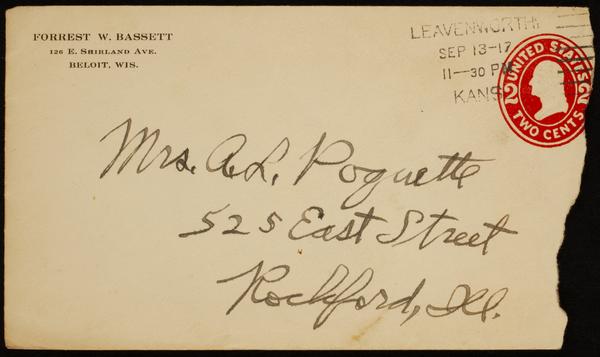 FORREST W. BASSETT
126 E. SHIRLAND AVE.
BELOIT, WIS.
LEAVENWORTH
SEP 13-17
11-30 PM
KANS
UNITED STATES
2 2
TWO CENTS
Mrs. A. L. Poquette
525 East Street
Rockford, Ill.